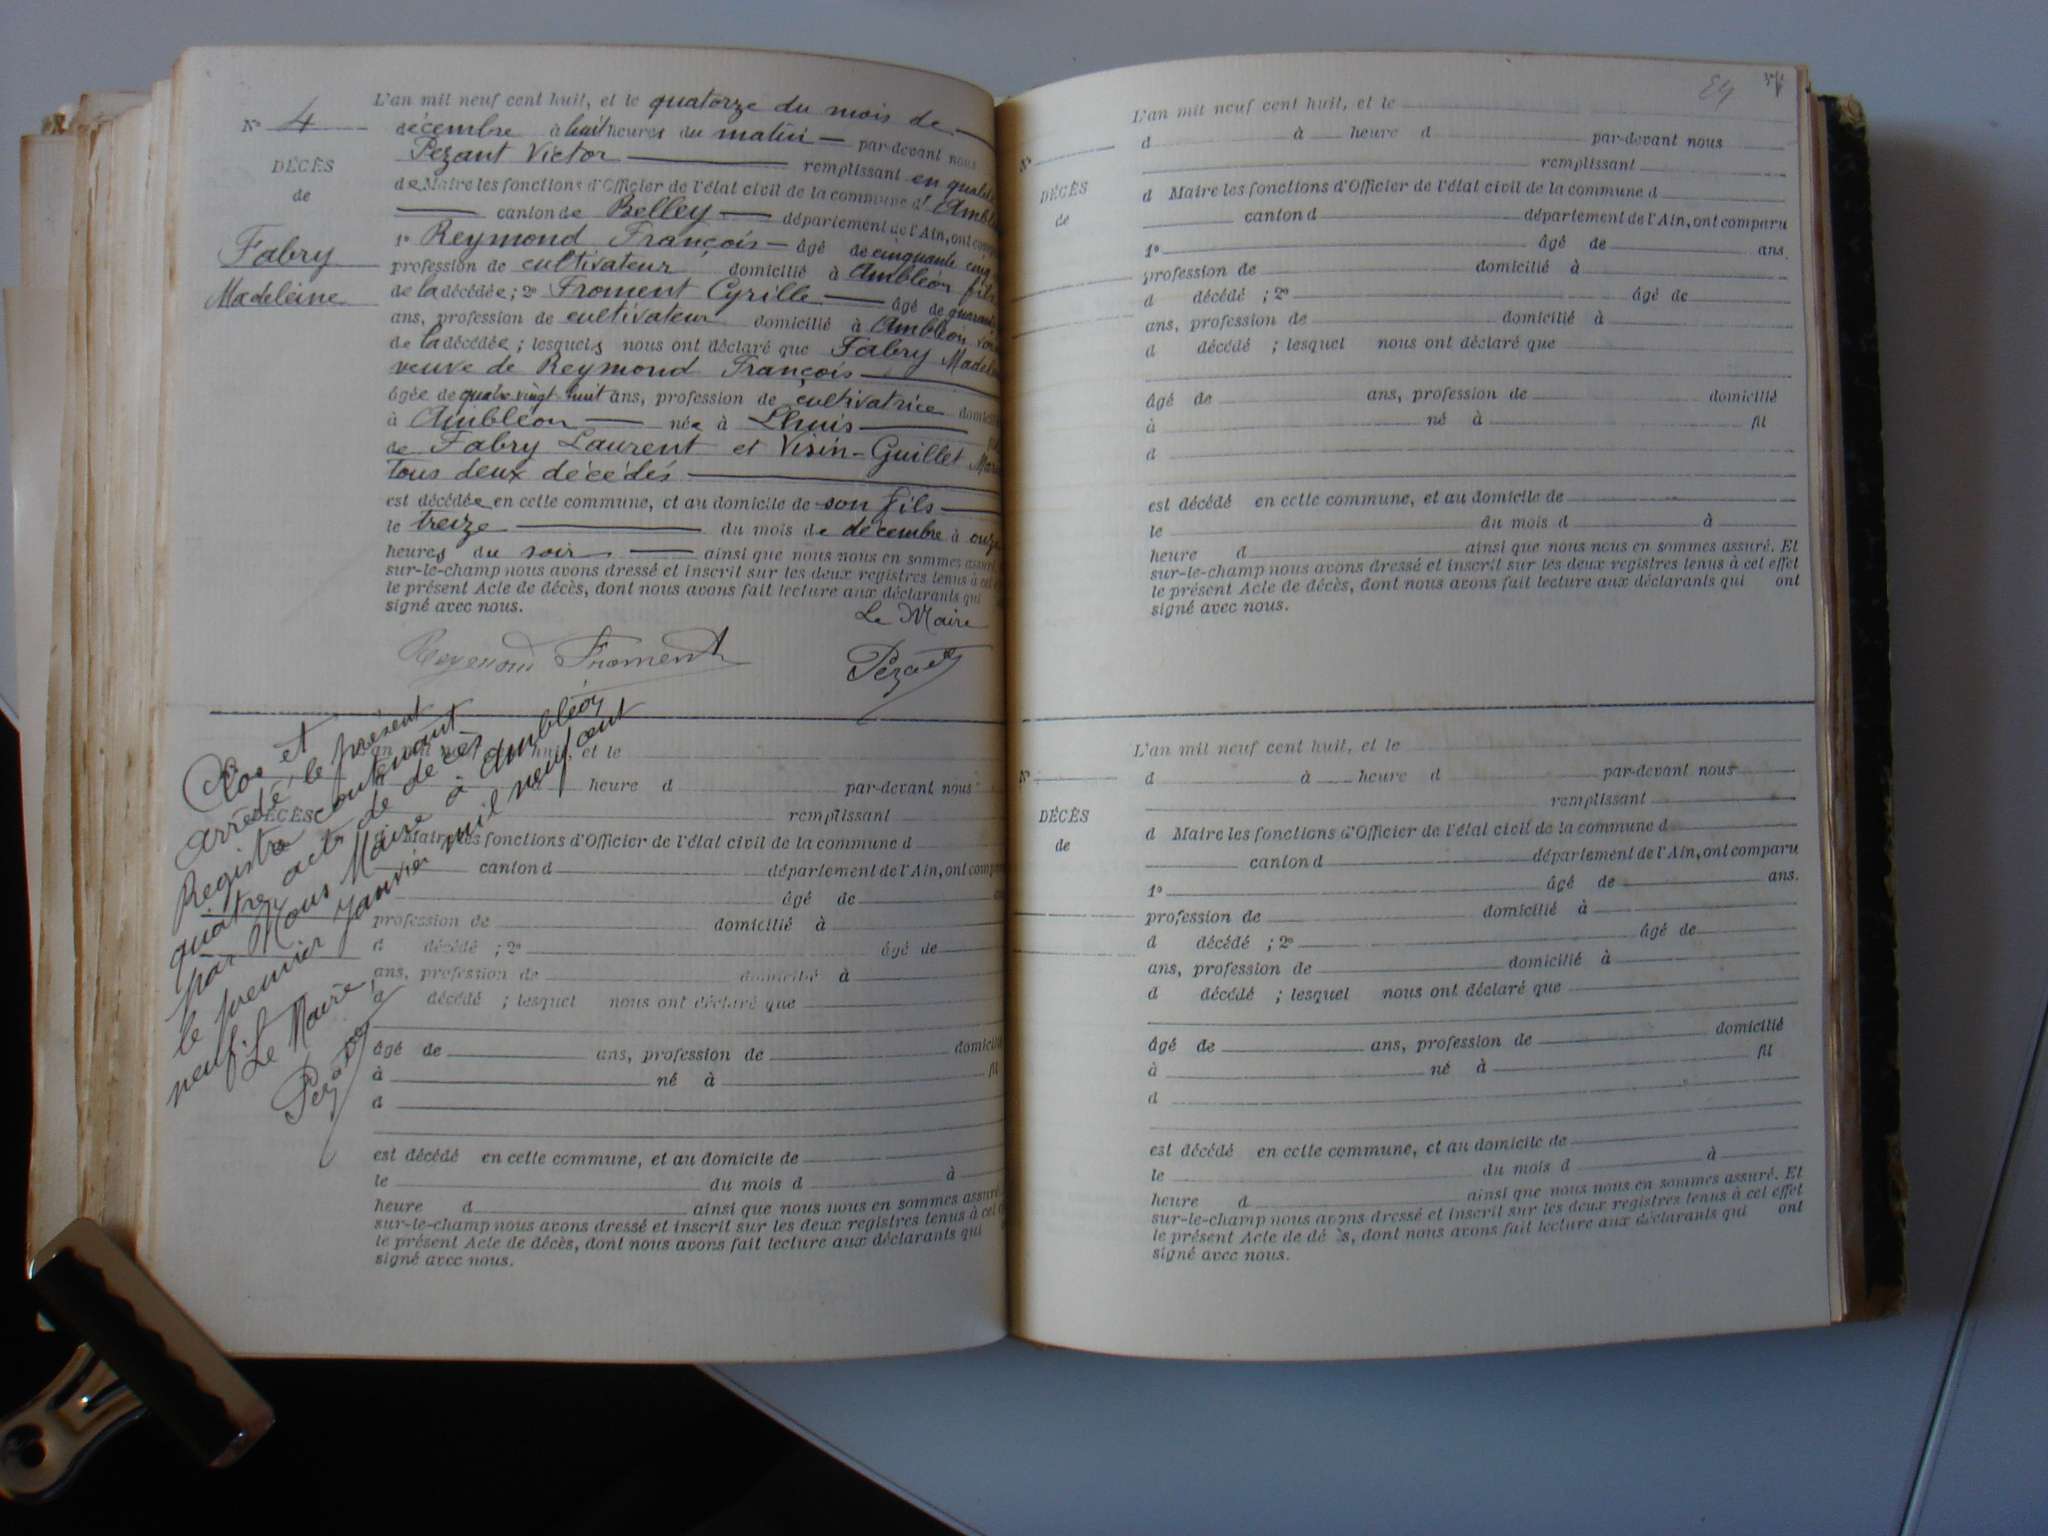 L'an mil neuf cent huit, et le quatorze du mois de
N° 4
décembre à huit heures du matin par-devant nous
Pezant Victor remplissant en qualité
DÉCÈS
de Maire les fonctions d'Officier de l'état civil de la commune d'Ambl
de
canton de Belley département de l'Ain, ont comp
1° Reymond François âgé de cinquante cinq
Fabry
profession de cultivateur domicilié à Ambléon fils
Madeleine
de la décédée ; 2° Froment Cyrille âgé de quarante
ans, profession de cultivateur domicilié à Ambléon
de la décédée ; lesquels nous ont déclaré que Fabry Madel
veuve de Reymond François
âgée de quatre vingt huit ans, profession de cultivatrice domici
à Ambléon née à Lhuis
de Fabry Laurent et Visin-Guillet Mari
tous deux décédés
est décédée en cette commune, et au domicile de son fils
le treize du mois de décembre à onze
heures du soir ainsi que nous nous en sommes assuré
sur-le-champ nous avons dressé et inscrit sur les deux registres tenus à cet
le présent Acte de décès, dont nous avons fait lecture aux déclarants qui
signé avec nous.
Le Maire
Reymond Froment Pezant
Clos et
arrêté, le présent
Registre contenant
quatre acts de décès
par Nous Maire à Ambléon
le premier janvier mil neuf cent
neuf.
Le Maire,
Pezant
huit, et le
heure d par-devant nous
DÉCÈS
remplissant
Maire les fonctions d'Officier de l'état civil de la commune d
canton d département de l'Ain, ont compa
âgé de
profession de domicilié à
d décédé ; 2° âgé de
ans, profession de domicilié à
d décédé ; lesquel nous ont déclaré que
âgé de ans, profession de domicilié
à né à fil
d
est décédé en cette commune, et au domicile de
le du mois d à
heure d ainsi que nous nous en sommes assuré
sur-le-champ nous avons dressé et inscrit sur les deux registres tenus à cet
le présent Acte de décès, dont nous avons fait lecture aux déclarants qui
signé avec nous.
L'an mil neuf cent huit, et le
N°
d à heure d par-devant nous
remplissant
DÉCÈS
d Maire les fonctions d'Officier de l'état civil de la commune d
de
canton d département de l'Ain, ont comparu
1° âgé de ans.
profession de domicilié à
d décédé ; 2° âgé de
ans, profession de domicilié à
d décédé ; lesquel nous ont déclaré que
âgé de ans, profession de domicilié
à né à fil
d
est décédé en cette commune, et au domicile de
le du mois d à
heure d ainsi que nous nous en sommes assuré. Et
sur-le-champ nous avons dressé et inscrit sur les deux registres tenus à cet effet
le présent Acte de décès, dont nous avons fait lecture aux déclarants qui ont
signé avec nous.
L'an mil neuf cent huit, et le
N°
d à heure d par-devant nous
remplissant
DÉCÈS
d Maire les fonctions d'Officier de l'état civil de la commune d
de
canton d département de l'Ain, ont comparu
1° âgé de ans.
profession de domicilié à
d décédé ; 2° âgé de
ans, profession de domicilié à
d décédé ; lesquel nous ont déclaré que
âgé de ans, profession de domicilié
à né à fil
d
est décédé en cette commune, et au domicile de
le du mois d à
heure d ainsi que nous nous en sommes assuré. Et
sur-le-champ nous avons dressé et inscrit sur les deux registres tenus à cet effet
le présent Acte de dé s, dont nous avons fait lecture aux déclarants qui ont
signé avec nous.